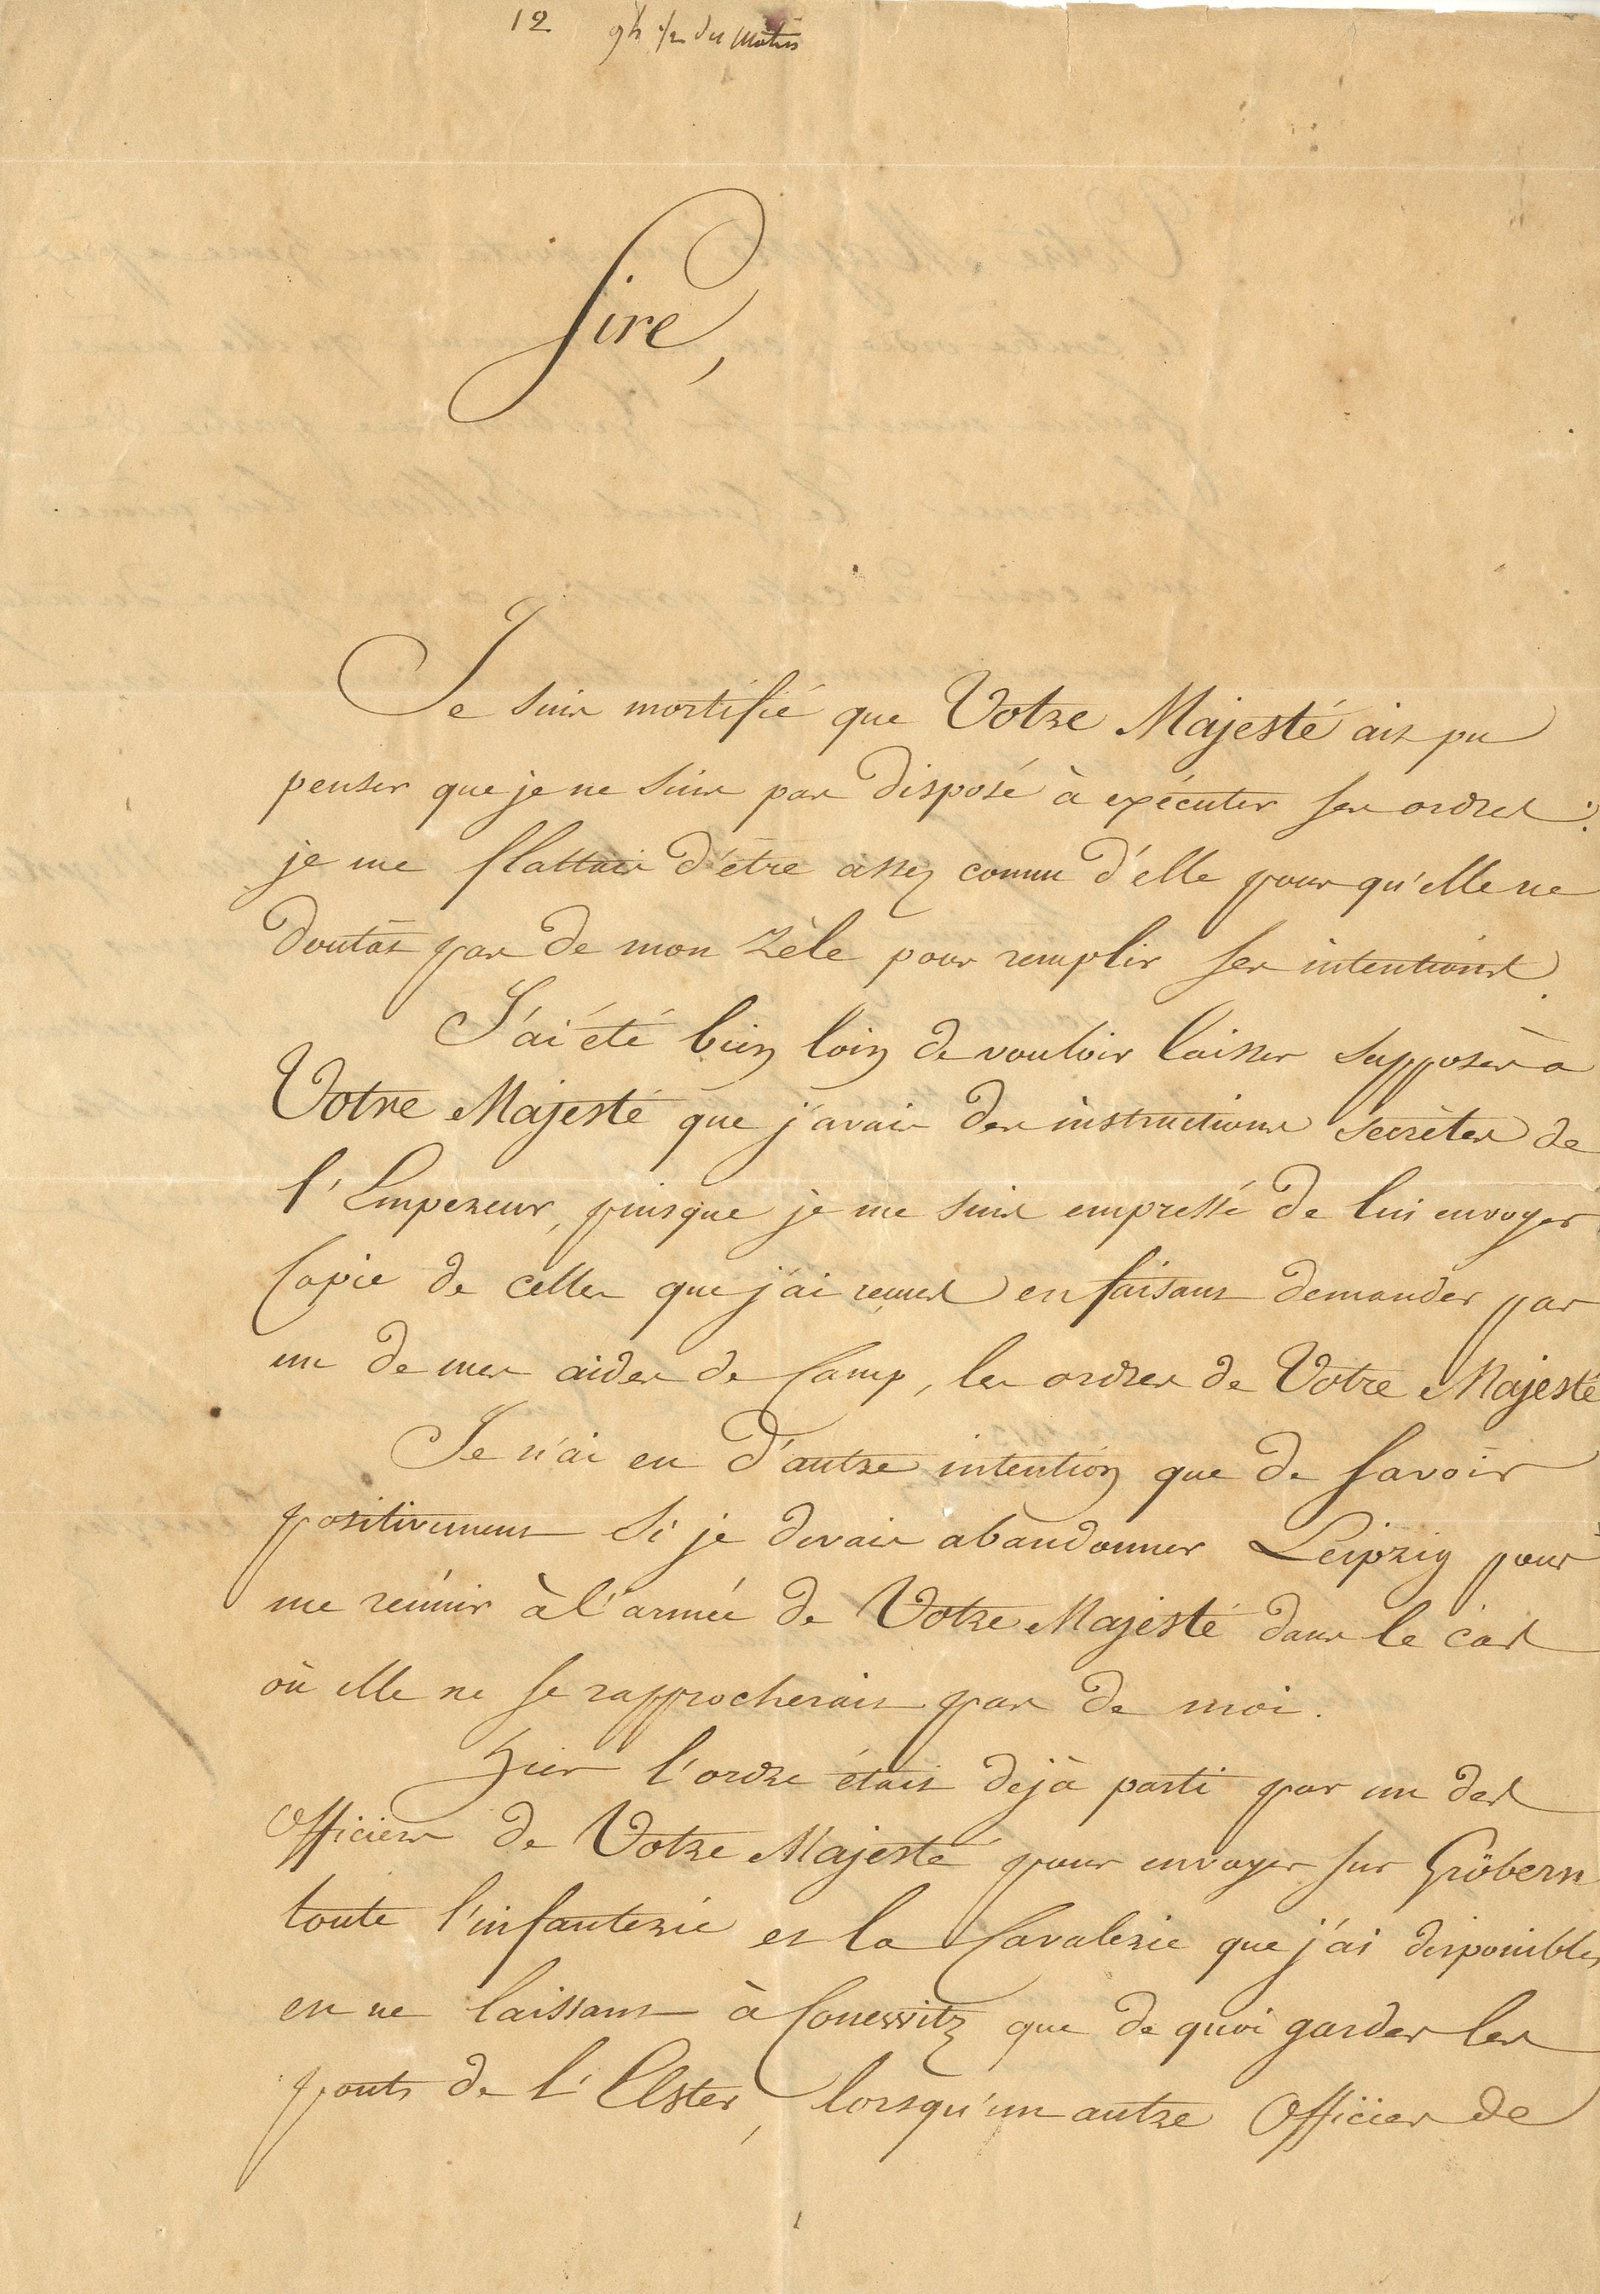 12 9h 1/2 du matin
Sire,
Je suis mortifié que Votre Majesté ait pu
penser que je ne suis pas disposé à exécuter ses ordres :
je me flattais d'être assez connu d'elle pour qu'elle ne
doutât pas de mon zèle pour remplir ses intentions.
J'ai été bien loin de vouloir laisser supposer à
Votre Majesté que j'avais des instructions secrètes de
l'Empereur, puisque je me suis empressé de lui envoyer
Copie de celles que j'ai reçues en faisant demander par
un de mes aides de Camp, les ordres de Votre Majesté
Je n'ai eu d'autre intention que de savoir
positivement si je devais abandonner Leipzig pour
me réunir à l'armée de Votre Majesté dans le cas
où elle ne se rapprocherait pas de moi.
Hier l'ordre était déjà parti par un des
Officiers de Votre Majesté pour envoyer sur Gröbern
toute l'infanterie et la Cavalerie que j'ai disponibles
en ne laissant à Conewitz que de quoi garder les
ponts de l'Elster, lorsqu'un autre Officier de